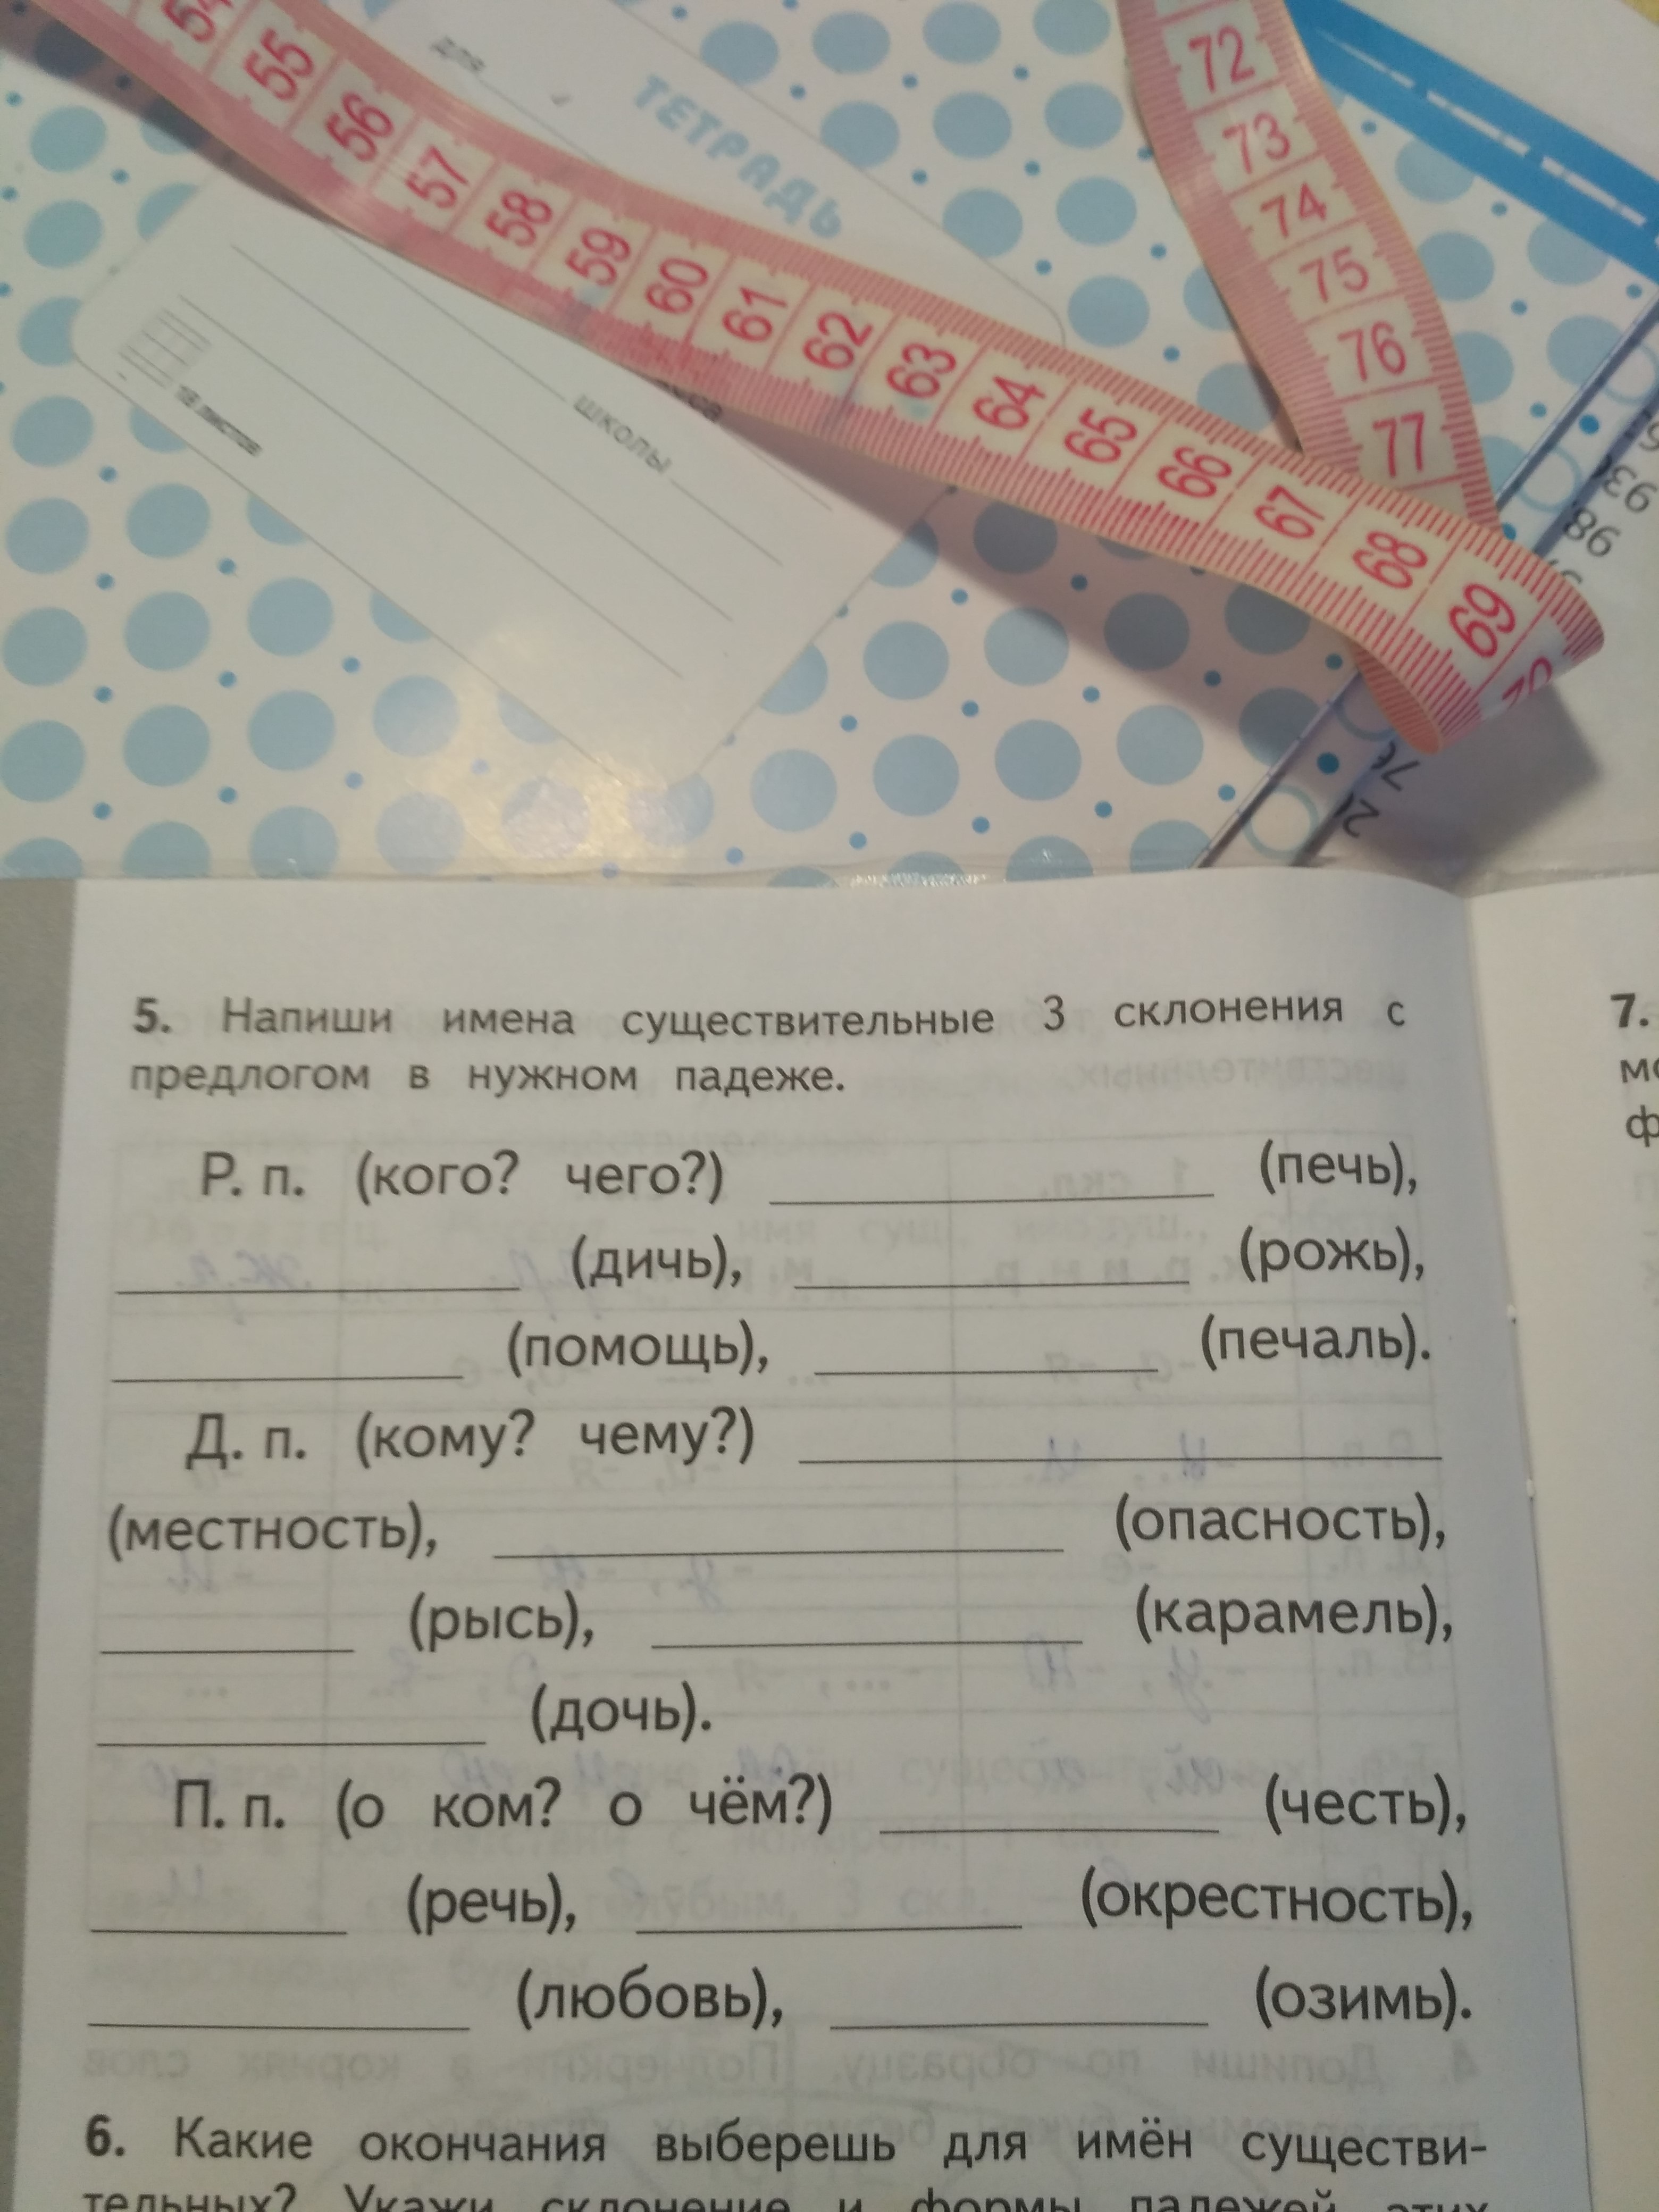 54
55
56
57
58
59
60
61
62
63
64
65
66
67
68
69
70
72
73
74
75
76
77
для
ТЕТРАДЬ
школы
18 листов
98
93
5. Напиши имена существительные 3 склонения с
предлогом в нужном падеже.
Р. п. (кого? чего?) ____________ (печь),
____________ (дичь), ____________ (рожь),
____________ (помощь), ____________ (печаль).
Д. п. (кому? чему?) ____________
(местность), ____________ (опасность),
____________ (рысь), ____________ (карамель),
____________ (дочь).
П. п. (о ком? о чём?) ____________ (честь),
____________ (речь), ____________ (окрестность),
____________ (любовь), ____________ (озимь).
6. Какие окончания выберешь для имён существи-
тельных? Укажи склонение и формы падежей этих
7.